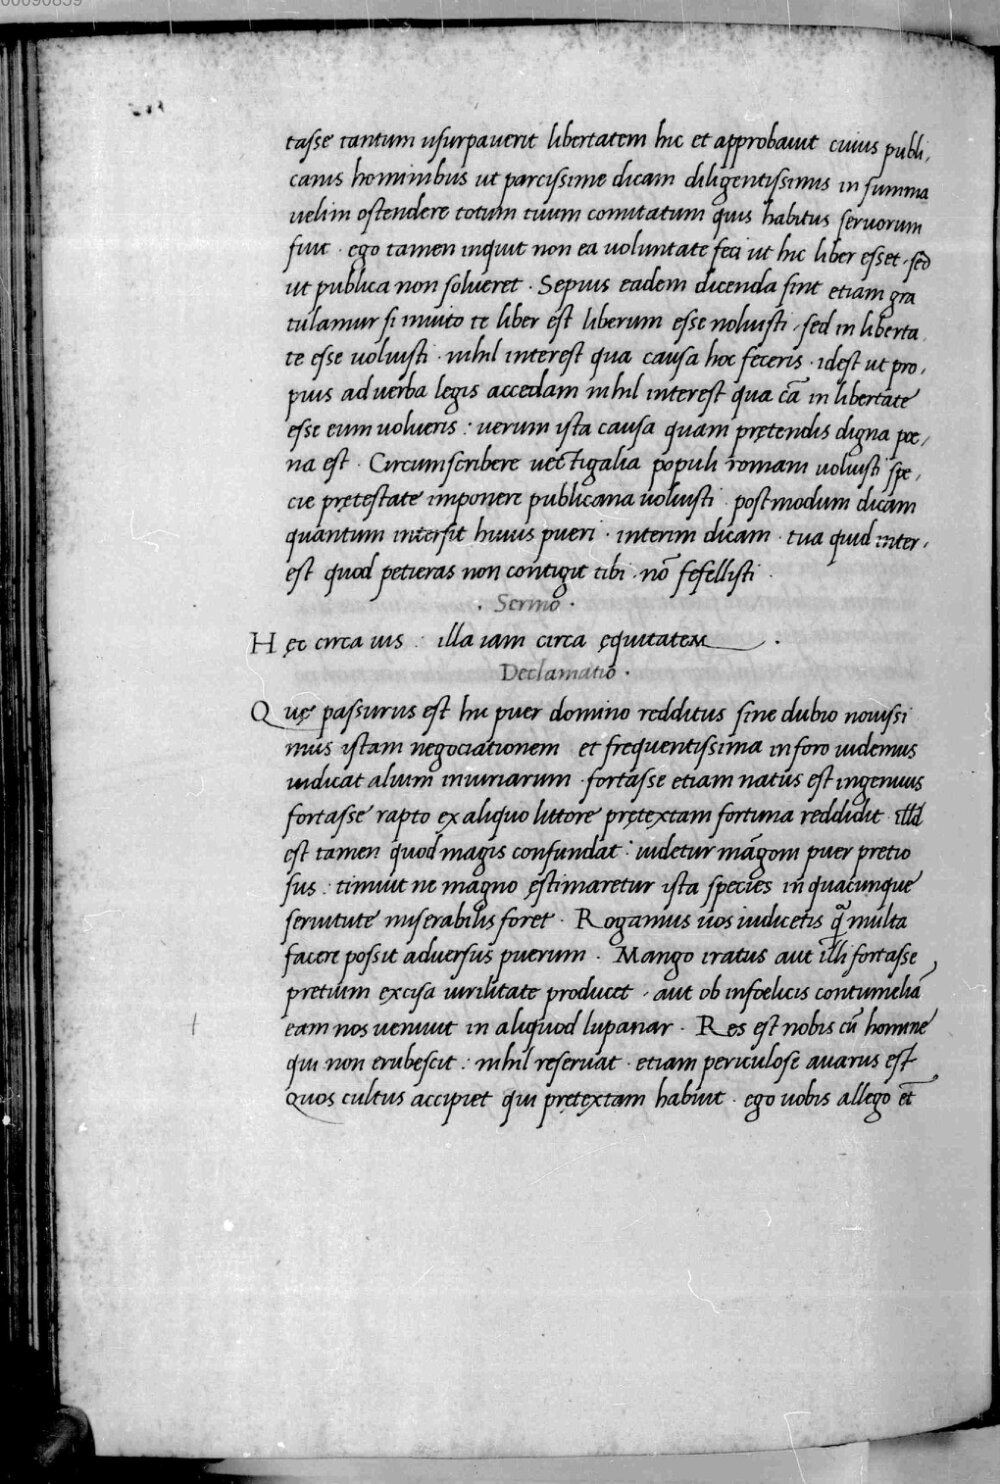 00090859
tasse tantum usurpaverit libertatem hic et approbavit cuius publi,
canis hominibus ut parcissime dicam diligentissimis in summa
uelim ostendere totum tuum comitatum quis habitus seruorum
fuit · ego tamen inquit non ea uoluntate feci ut hic liber esset · sed
ut publica non solueret · Sepius eadem dicenda sint etiam gra
tulamur si inuito te liber est liberum esse noluisti · sed in liberta,
te esse uoluisti · nihil interest qua causa hoc feceris · idest ut pro,
pius ad uerba legis accedam nihil interest qua cā in libertate
esse eum uolueris : uerum ista causa quam pretendis digna poe,
na est · Circumscribere uectigalia populi romani uoluisti spe,
cie pretestate imponere publicana uoluisti · postmodum dicam
quantum intersit huius pueri · interim dicam · tua quid inter,
est quod petieras non contigit tibi · nō fefellisti ·
· Sermo ·
Hęc circa ius : illa iam circa ęquitatem ·
Declamatio ·
Quę passurus est hic puer domino redditus sine dubio nouissi
mus istam negociationem et frequentissima in foro uidemus
uidicat alium iniuriarum · fortasse etiam natus est ingenuus
fortasse rapto ex aliquo littore prętextam fortuna reddidit · illd
est tamen quod magis confundat : uidetur māgoni puer pretio
sus : timuit ne magno ęstimaretur ista species in quacunque
seruitute miserabilis foret · Rogamus uos iudicetis q̄ multa
facere possit aduersus puerum · Mango iratus aut illi fortasse
pretium excisa uirilitate producet · aut ob infoelicis contumeliā
eam nos ueniuit in aliquod lupanar · Res est nobis cū homine
qui non erubescit : nihil reseruat · etiam periculose auarus est
Quos cultus accipiet qui prętextam habuit · ego uobis allego et̄